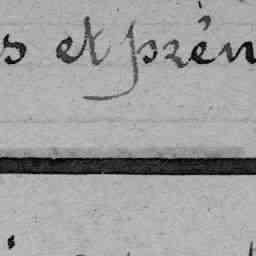 s et prén